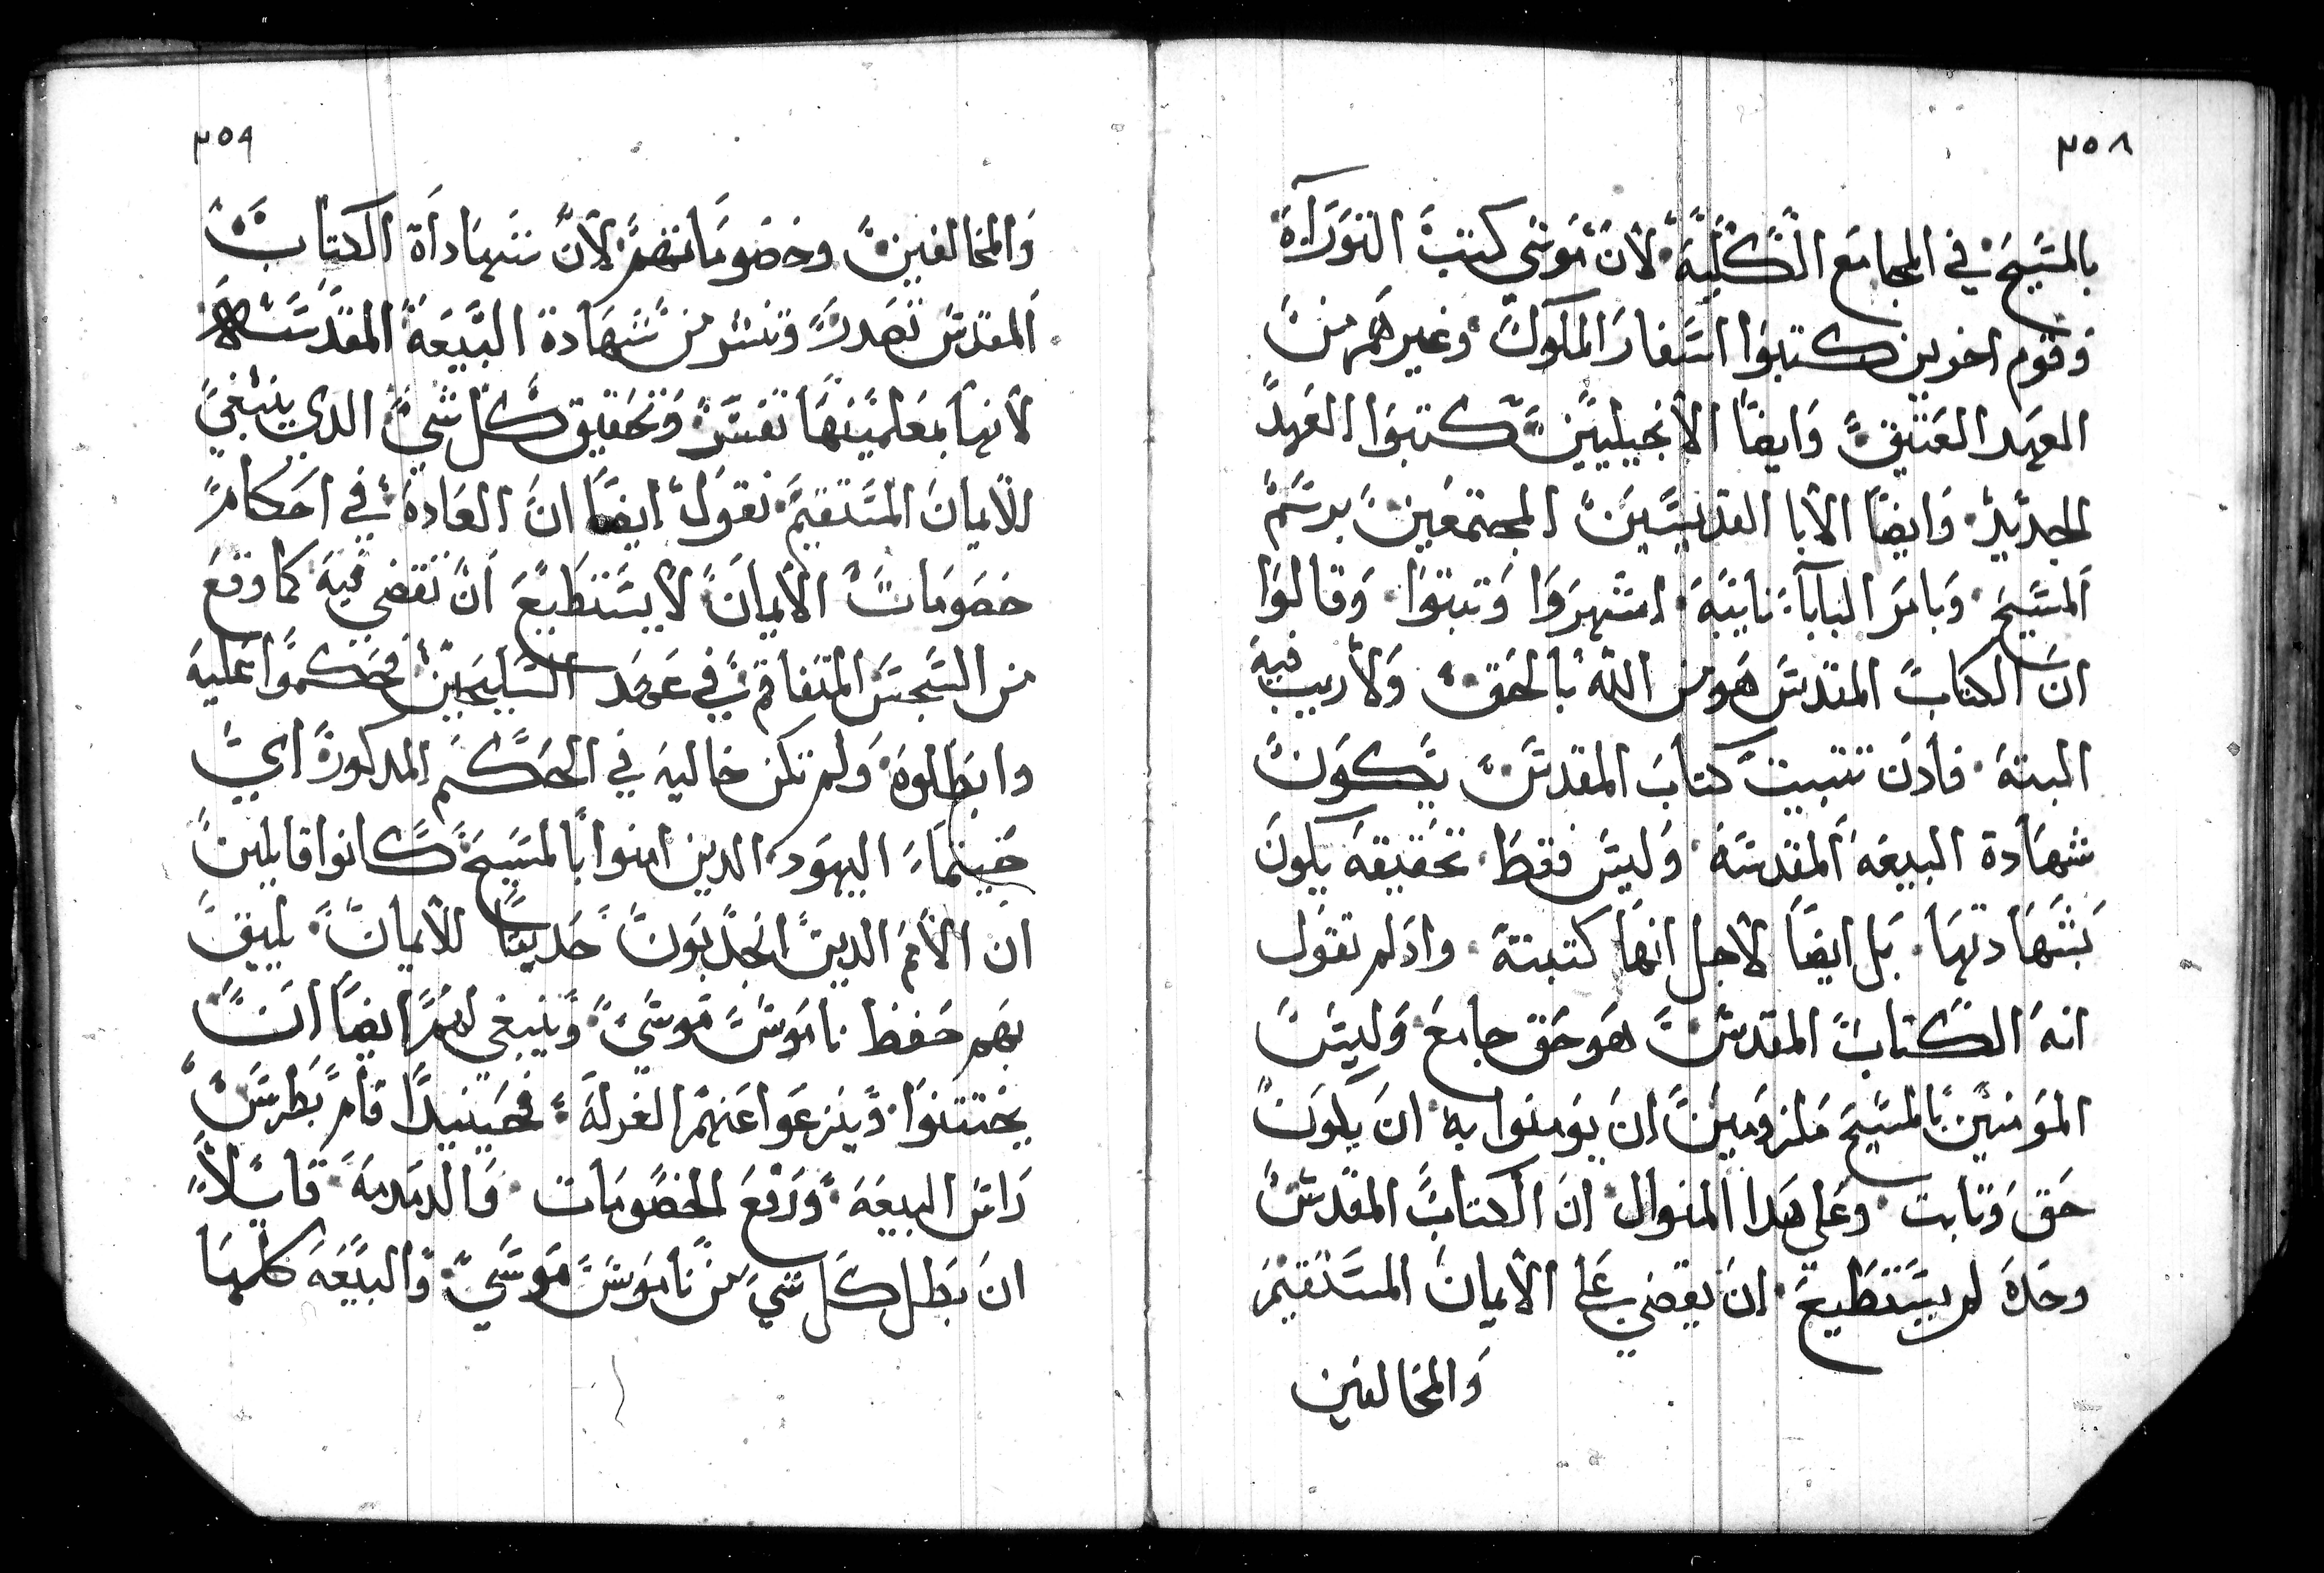 ٣٥٨
بالمسيح في المجامع الكليه لان موسى كتب التوراة
وقوم اخرين كتبوا اسفار الملوك وغيرهم من
العهد العتيق وايضا الانجيليين كتبوا العهد
الجديد وايضا الابا القديسين المجتمعين برسم
المسيح وبامر البابا نايبه اشهروا وتبتوا وقالوا
ان الكتاب المقدس هو من الله بالحق ولا ريب فيه
البته فادن تتبيت كتاب المقدس يكون
شهادة البيعه المقدسه وليس فقط تحقيقه يكون
بشهادتها بل ايضا لاجل انها كتبته وادلم تقول
انه الكتاب المقدس هو حق جامع وليس
المومنين بالمسيح ملزومين ان يومنوا به ان يكون
حق وتابت وعلي هدا المنوال ان الكتاب المقدس
وحده لم يستطيع ان يقضي على الايمان المستقيم
والمخالفين
٣٥٩
والمخالفين وخصوماتهم لان شهاداة الكتاب
المقدس تصدر وتنشر من شهادة البيعه المقدسه
لانها بمعلمينها تفسر وتحقيق كل شي الدي ينبغي
للايمان المستقيم نقول ايضا ان العادة في احكام
خصومات الايمان لا يستطيع ان تقضي فيه كما وقع
من السجس المتفاقم في عهد السليحيين فحكموا عليه
وابطلوه ولم تكن خاليه في الحكم المدكورة اي
حينما اليهود الدين امنوا بالمسيح كانوا قايلين
ان الامم الدين انجدبون حديثا للايمان يليق
بهم حفظ ناموس موسي وينبغي لهم ايضا ان
يختتنوا وينزعوا عنهم الغرله فحينيدا قام بطرس
راس البيعه ورفع الخصومات والدمدمه قايلا
ان بطل كل شي من ناموس موسي والبيعه كلها